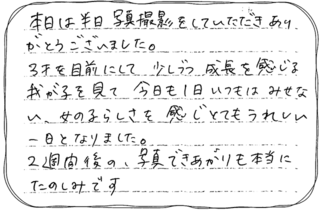 本日は半日写真撮影をしていただきあり
がとうございました。
3才を目前にして、少しづつ成長を感じる
我が子を見て今日も1日いつもはみせな
い、女の子らしさを感じとてもうれしい
一日となりました。
2週間後の、写真できあがりも本当に
たのしみです